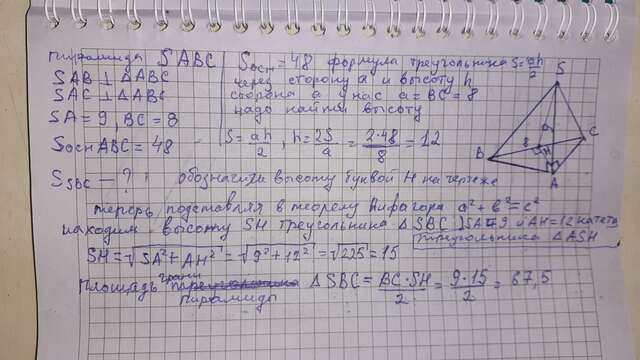 Пирамида SABC
SAB ⊥ ΔABC
SAC ⊥ ΔABC
SA = 9, BC = 8
Sосн ABC = 48
S SBC - ?
Sосн = 48 формула треугольника S = ah/2
через сторону a и высоту h
сторона a у нас a = BC = 8
надо найти высоту
S = ah/2, h = 2S/a = 2·48/8 = 12
обозначили высоту буквой H на чертеже
S
9
C
8
B
H
A
теперь подставляя в теорему Пифагора a² + b² = c²
находим высоту SH треугольника ΔSBC SA=9 и AH=12 катеты
треугольника ΔASH
SH = √SA² + AH² = √9² + 12² = √225 = 15
Площадь грани
пирамиды ΔSBC = BC·SH/2 = 9·15/2 = 67,5